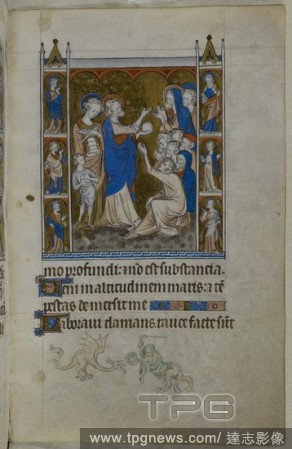 mo profundi: ⁊ nō est substancia.
Ueni in altitudinem maris: ⁊ tē
pestas demersit me
Laboraui clamans. rauce facte sūt
TPG
www.tpgnews.com / 達志影像